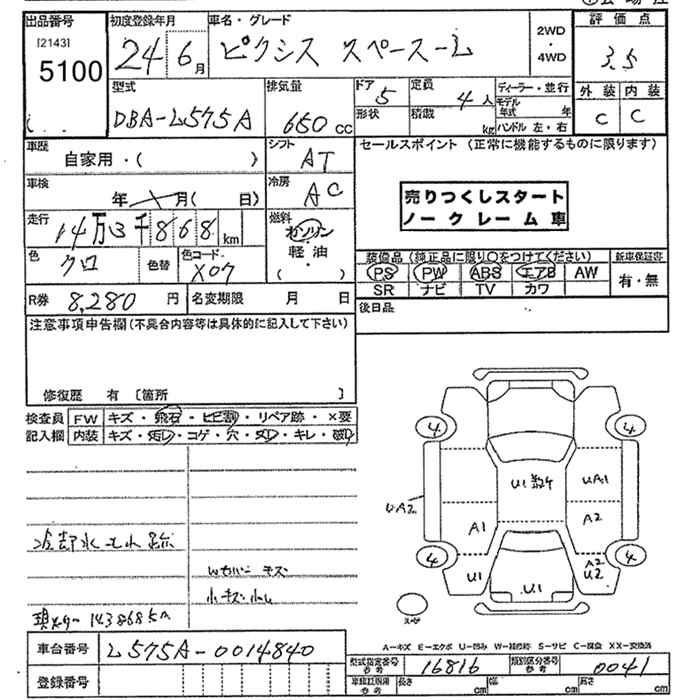 出品番号
[2143]
5100
初度登録年月
24 6月
車名・グレード
ピクシス スペース-L
2WD
・
4WD
評価点
3.5
外装 内装
C C
型式
DBA-L575A
排気量
650cc
ドア
5
形状
定員
4人
積載
kg
ディーラー・並行
モデル年式 年
ハンドル 左・右
車歴
自家用・( )
シフト
AT
セールスポイント (正常に機能するものに限ります)
売りつくしスタート
ノークレーム車
車検
年 月( 日)
冷房
AC
走行
14万3千868km
燃料
ガソリン
・
軽油
( )
色
クロ
色替
色コード
X07
装備品 (純正品に限り○をつけてください)
新車保証書
PS PW ABS エアB AW
SR ナビ TV カワ
有・無
R券 8,280円
名変期限 月 日
後日品
注意事項申告欄 (不具合内容等は具体的に記入して下さい)
修復歴 有 〔箇所 〕
検査員
記入欄
FW キズ・飛石・ヒビ割・リペア跡・×要
内装 キズ・汚レ・コゲ・穴・スレ・キレ・破レ
冷却水モレ跡
Wカバー キズ
小キズ小凹
現メーター 143868km
4
4
U1数ケ
UA1
UA2
A1
A2
4
4
U1
U1
A2
U2
スペア
A-キズ E-エクボ U-凹み W-補修跡 S-サビ C-腐食 XX-交換済
車台番号
L575A-0014840
登録番号
型式指定番号
参考
16816
類別区分番号
参考
0041
長さ cm
幅 cm
高さ cm